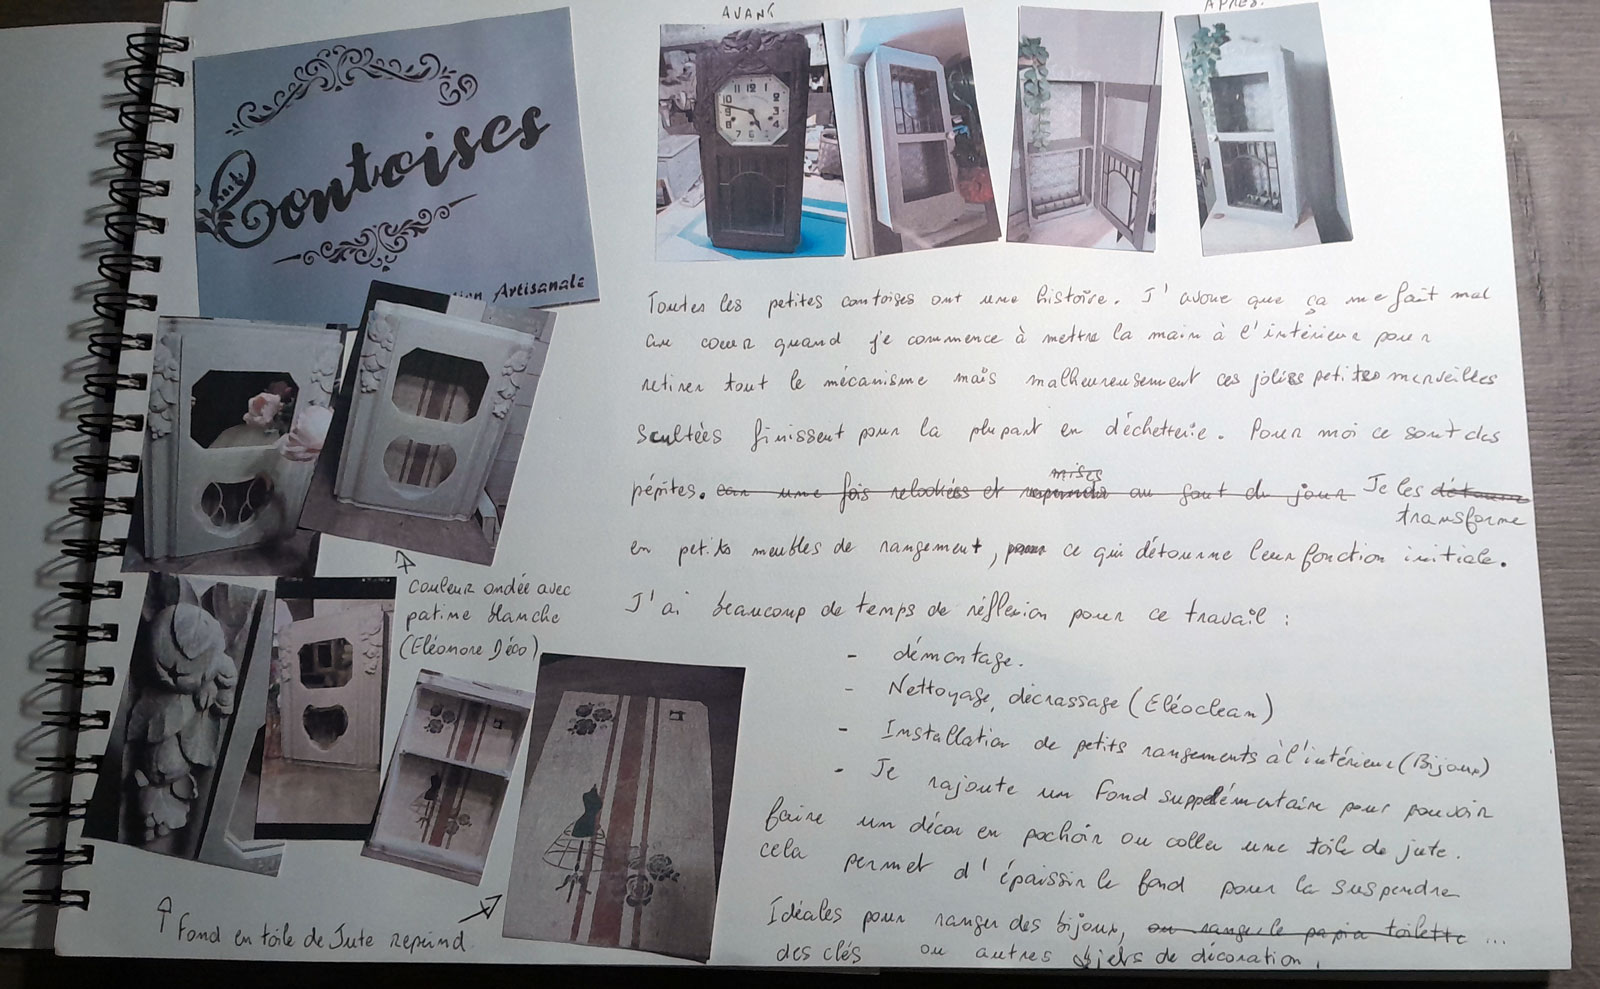 AVANT
APRES.
Comtoises
Artisanale
Toutes les petites comtoises ont une histoire. J'avoue que ça me fait mal
au coeur quand je commence à mettre la main à l'intérieur pour
retirer tout le mécanisme mais malheureusement ces jolies petites merveilles
scultées finissent pour la plupart en déchetterie. Pour moi ce sont des
pépites. car une fois relookées et mises au gout du jour Je les
transforme
en petits meubles de rangement, ce qui détourne leur fonction initiale.
J'ai beaucoup de temps de réflexion pour ce travail :
- démontage.
- Nettoyage, décrassage (Eléoclean)
- Installation de petits rangements à l'intérieur (Bijoux)
- Je rajoute un fond supplémentaire pour pouvoir
faire un décor en pochoir ou coller une toile de jute.
cela permet d'épaissir le fond pour la suspendre
Idéales pour ranger des bijoux, ou ranger le papier toilette ...
des clés ou autres objets de décoration.
couleur ondée avec
patine blanche
(Eléonore Déco)
Fond en toile de Jute repeind